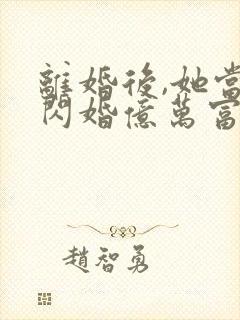 離婚後,她當
閃婚億萬富
趙智勇